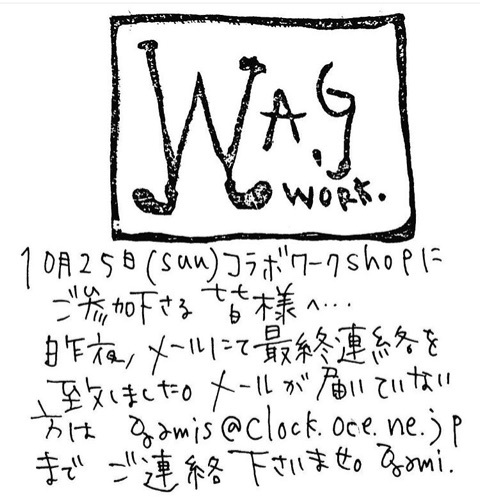 WA,G
WORK.
10月25日(sun)コラボワークshopに
ご参加下さる皆様へ…
昨夜,メールにて最終連絡を
至致しました。メールが届いていない
方は agamis@clock.ocn.ne.jp
まで ご連絡下さいませ。agami.